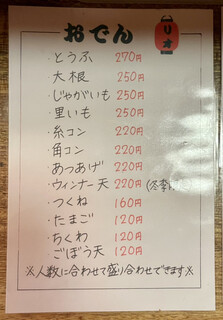 おでん
・とうふ 270円
・大根 250円
・じゃがいも 250円
・里いも 250円
・糸コン 220円
・角コン 220円
・あつあげ 220円
・ウィンナー天 220円 (冬季
・つくね 160円
・たまご 120円
・ちくわ 120円
・ごぼう天 120円
※人数に合わせて盛り合わせできます※